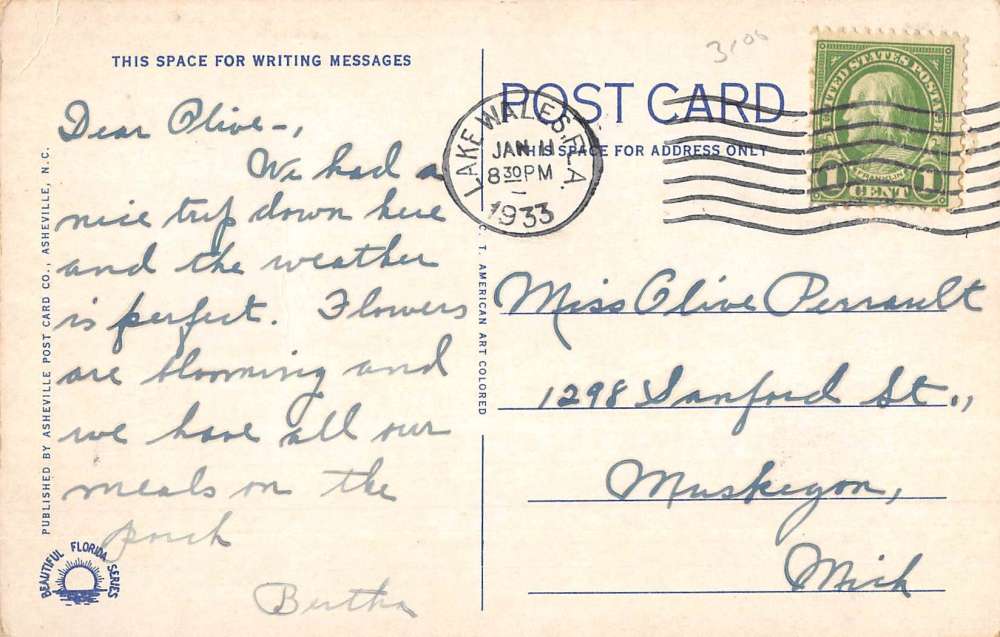 3/00
THIS SPACE FOR WRITING MESSAGES
POST CARD
THIS SPACE FOR ADDRESS ONLY
LAKE WALES, FLA
JAN 11
8 30 PM
1933
UNITED STATES POSTAGE
FRANKLIN
1 CENT 1
Dear Olive-,
We had a
nice trip down here
and the weather
is perfect. Flowers
are blooming and
we have all our
meals on the
porch
Bertha
Miss Olive Perrault
1298 Sanford St.,
Muskegon,
Mich
PUBLISHED BY ASHEVILLE POST CARD CO., ASHEVILLE, N. C.
C. T. AMERICAN ART COLORED
BEAUTIFUL FLORIDA SERIES